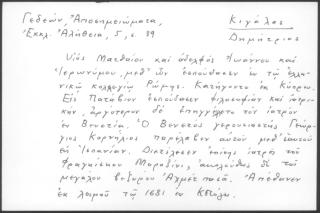 Γεδεών, Ἀποσημειώματα,
Ἐκκλ. Ἀλήθεια, 5, σ. 39
Κιγάλας
Δημήτριος
Υἱὸς Ματθαίου καὶ ἀδελφὸς Ἰωάννου καὶ
Ἱερωνύμου, μεθ' ὧν ἐσπούδασεν ἐν τῷ ἑλλη-
νικῷ κολλεγίῳ Ρώμης. Κατήγοντο ἐκ Κύπρου.
Εἰς Πατάβιον ἐσπούδασεν φιλοσοφίαν καὶ ἰατρι-
κήν, ἀργότερον δὲ ἐπηγγέλετο τὸν ἰατρὸν
ἐν Βενετίᾳ. Ὁ Βενετὸς γερουσιαστὴς Γεώρ-
γιος Κορνήλιος παρέλαβεν αὐτὸν μεθ' ἑαυτοῦ
ἐν Ἱσπανίαν. Διετέλεσεν ἐπίσης ἰατρὸς τοῦ
Φραγκίσκου Μοροζίνι, ἀκολούθως δὲ τοῦ
μεγάλου βεζύρου Ἀχμὲτ πασᾶ. Ἀπέθανεν
ἐκ λοιμοῦ τῷ 1681 ἐν